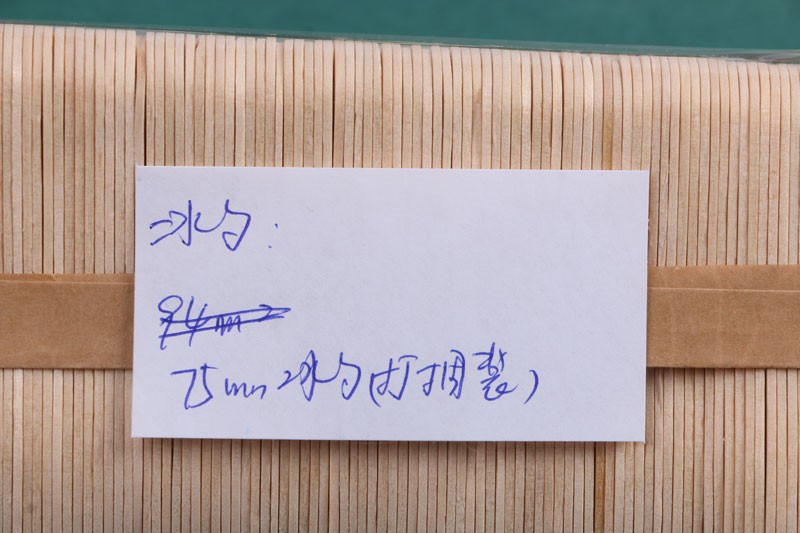 冰勺:
94mm
75mm冰勺(打捆装)